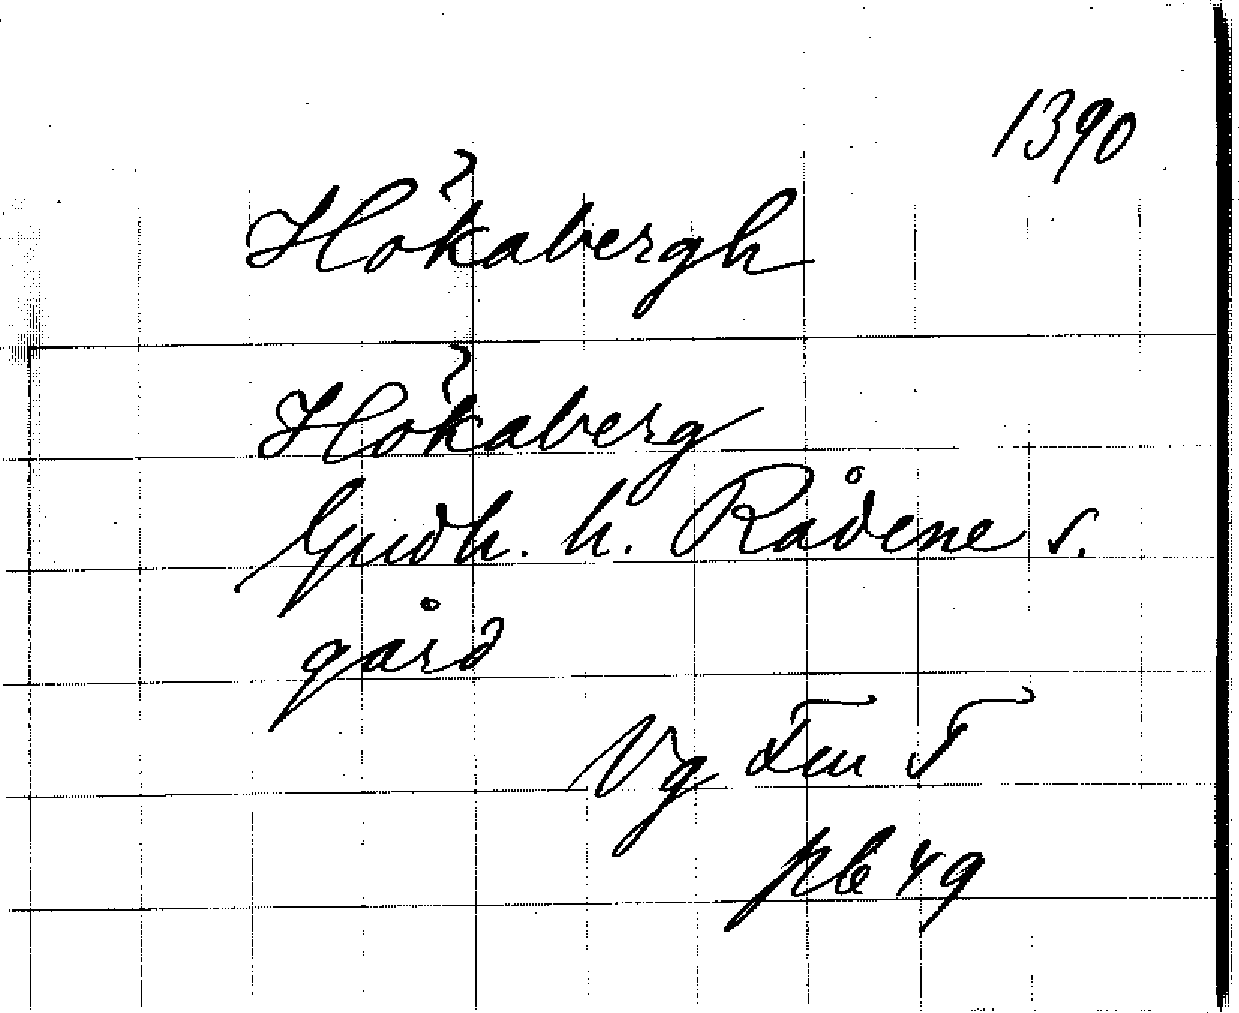 1390
Hökabergh
Hökaberg
Gudh. h. Rådene s.
gård
Vg
pb 49